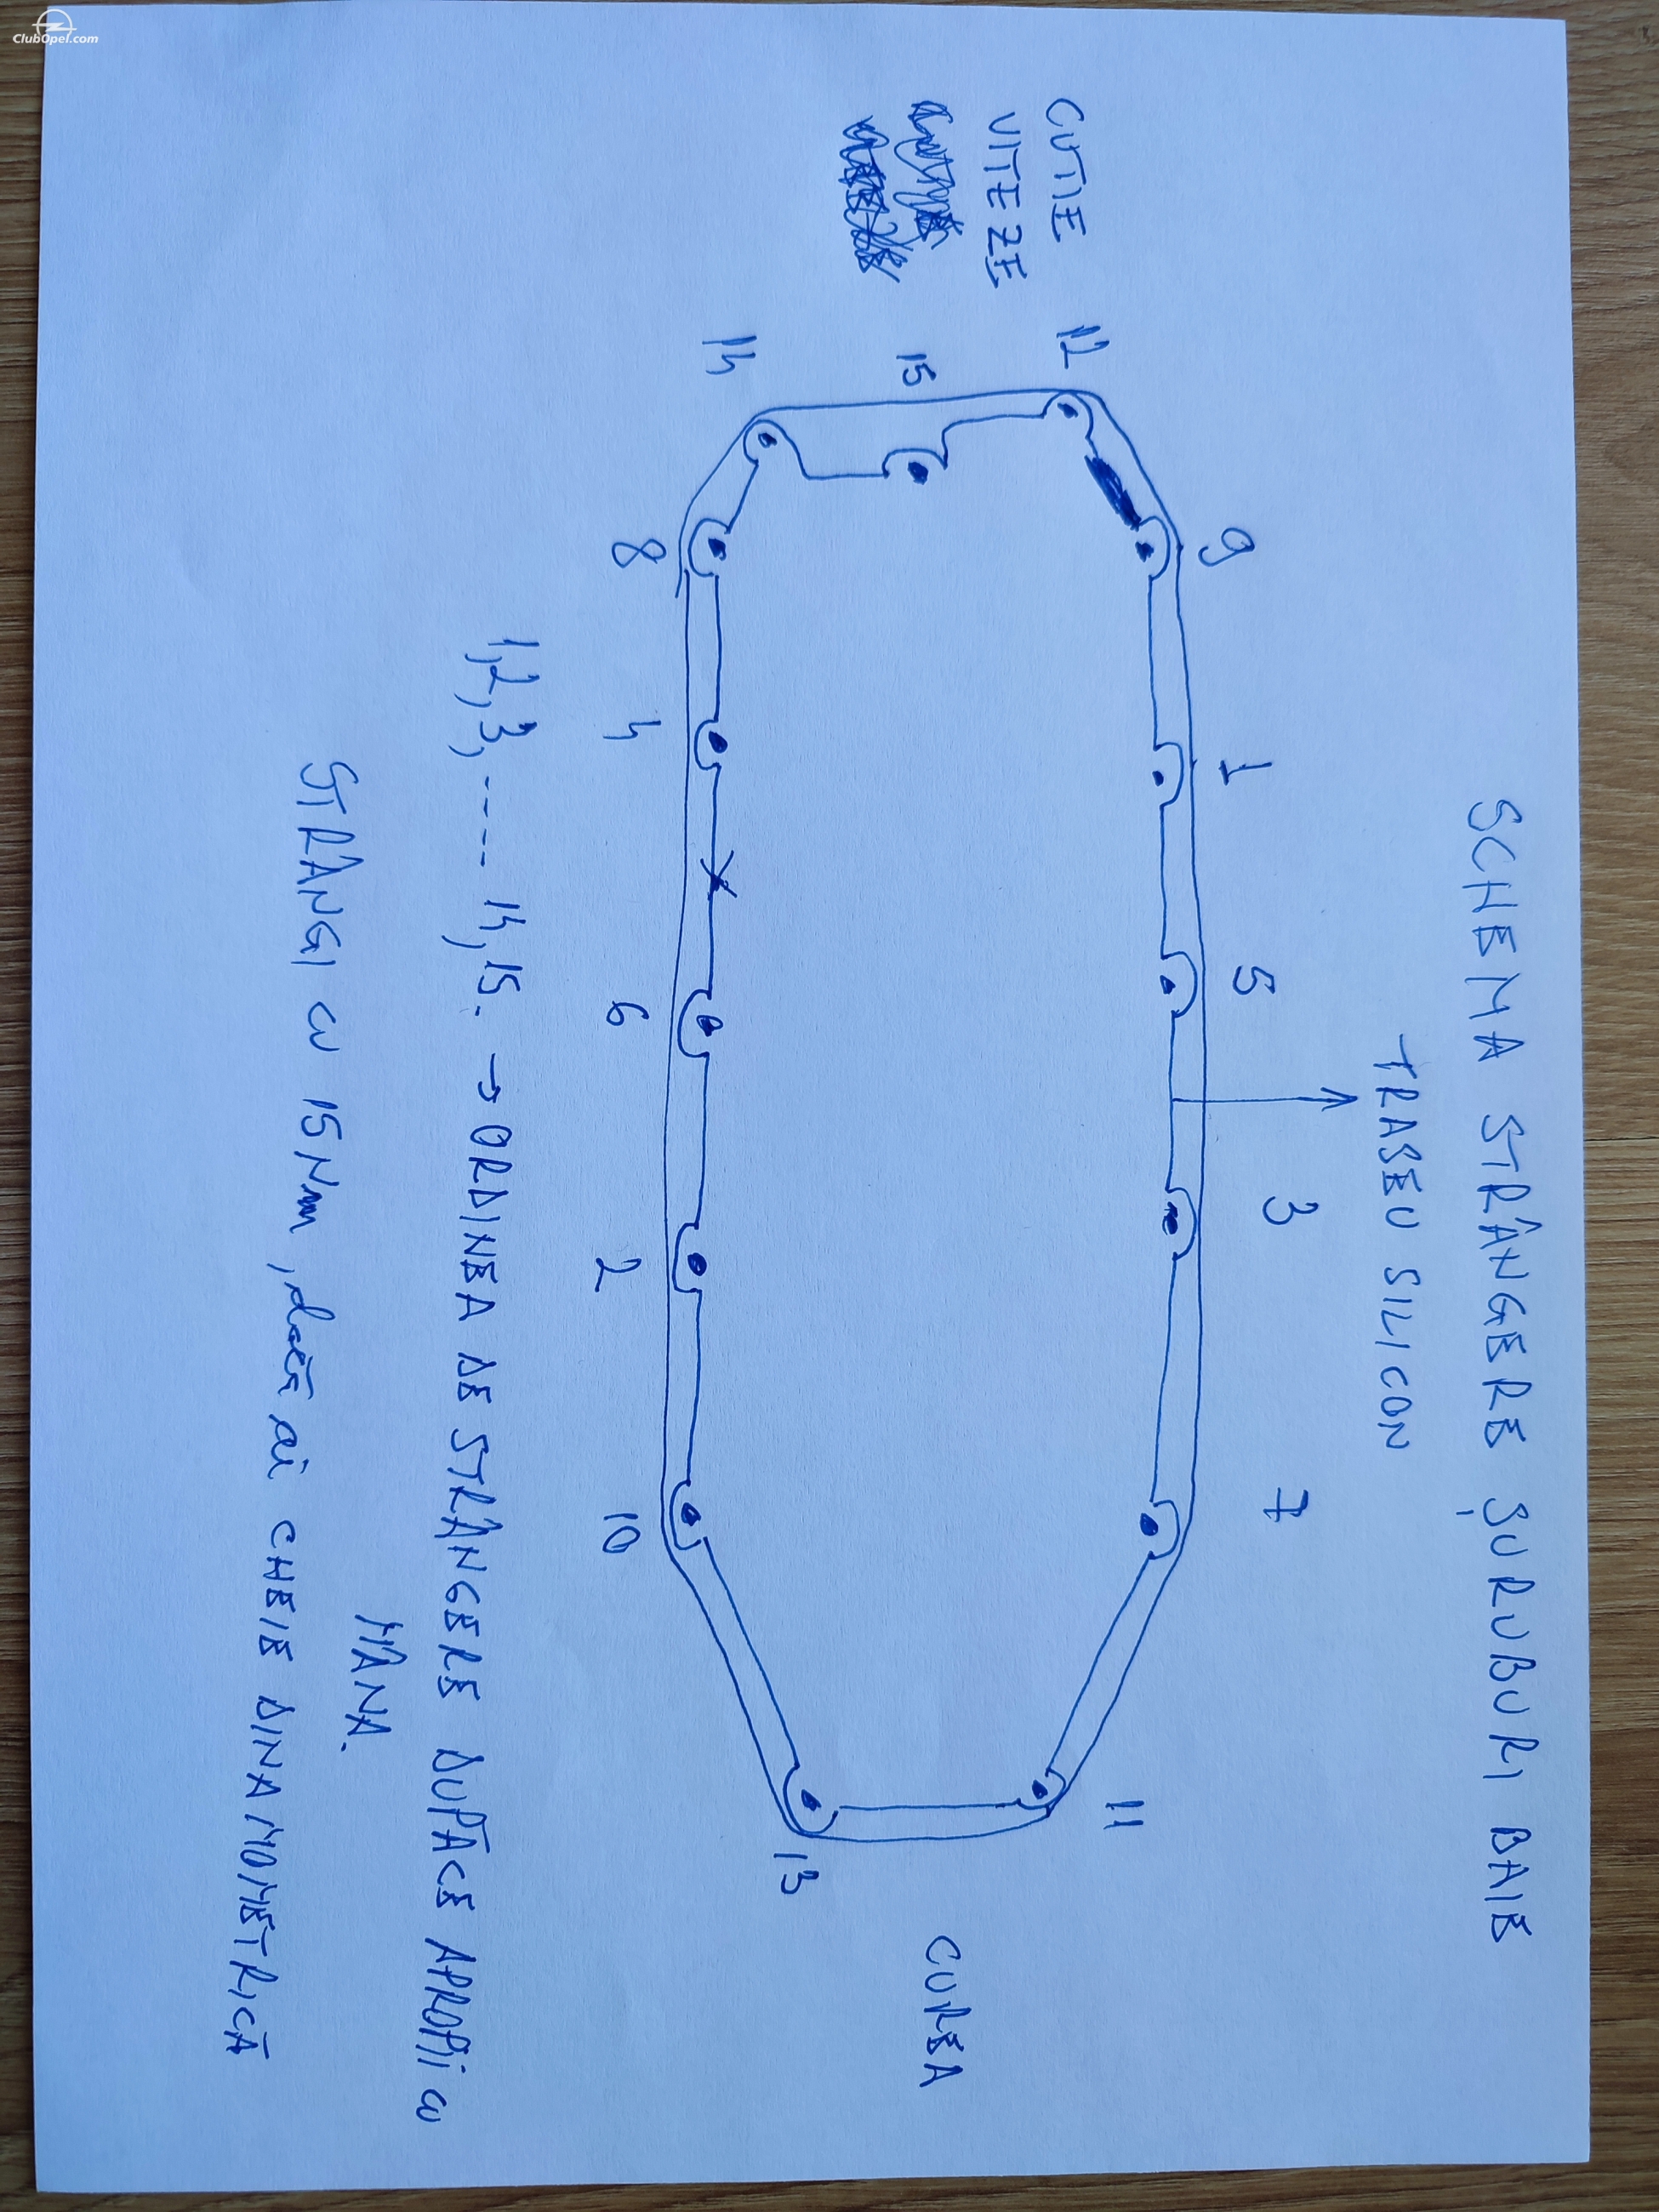 ClubOpel.com
SCHEMA STRÂNGERE ȘURUBURI BAIE
TRASEU SILICON
CUTIE
VITEZE
9 1 5 3 7
12
15
14
11
13
CUREA
8 4 6 2 10
1,2,3,---- 14,15. → ORDINEA DE STRÂNGERE DUPĂCE APROPII cu
MÂNA.
STRÂNGI cu 15Nm, dacă ai CHEIE DINAMOMETRICĂ